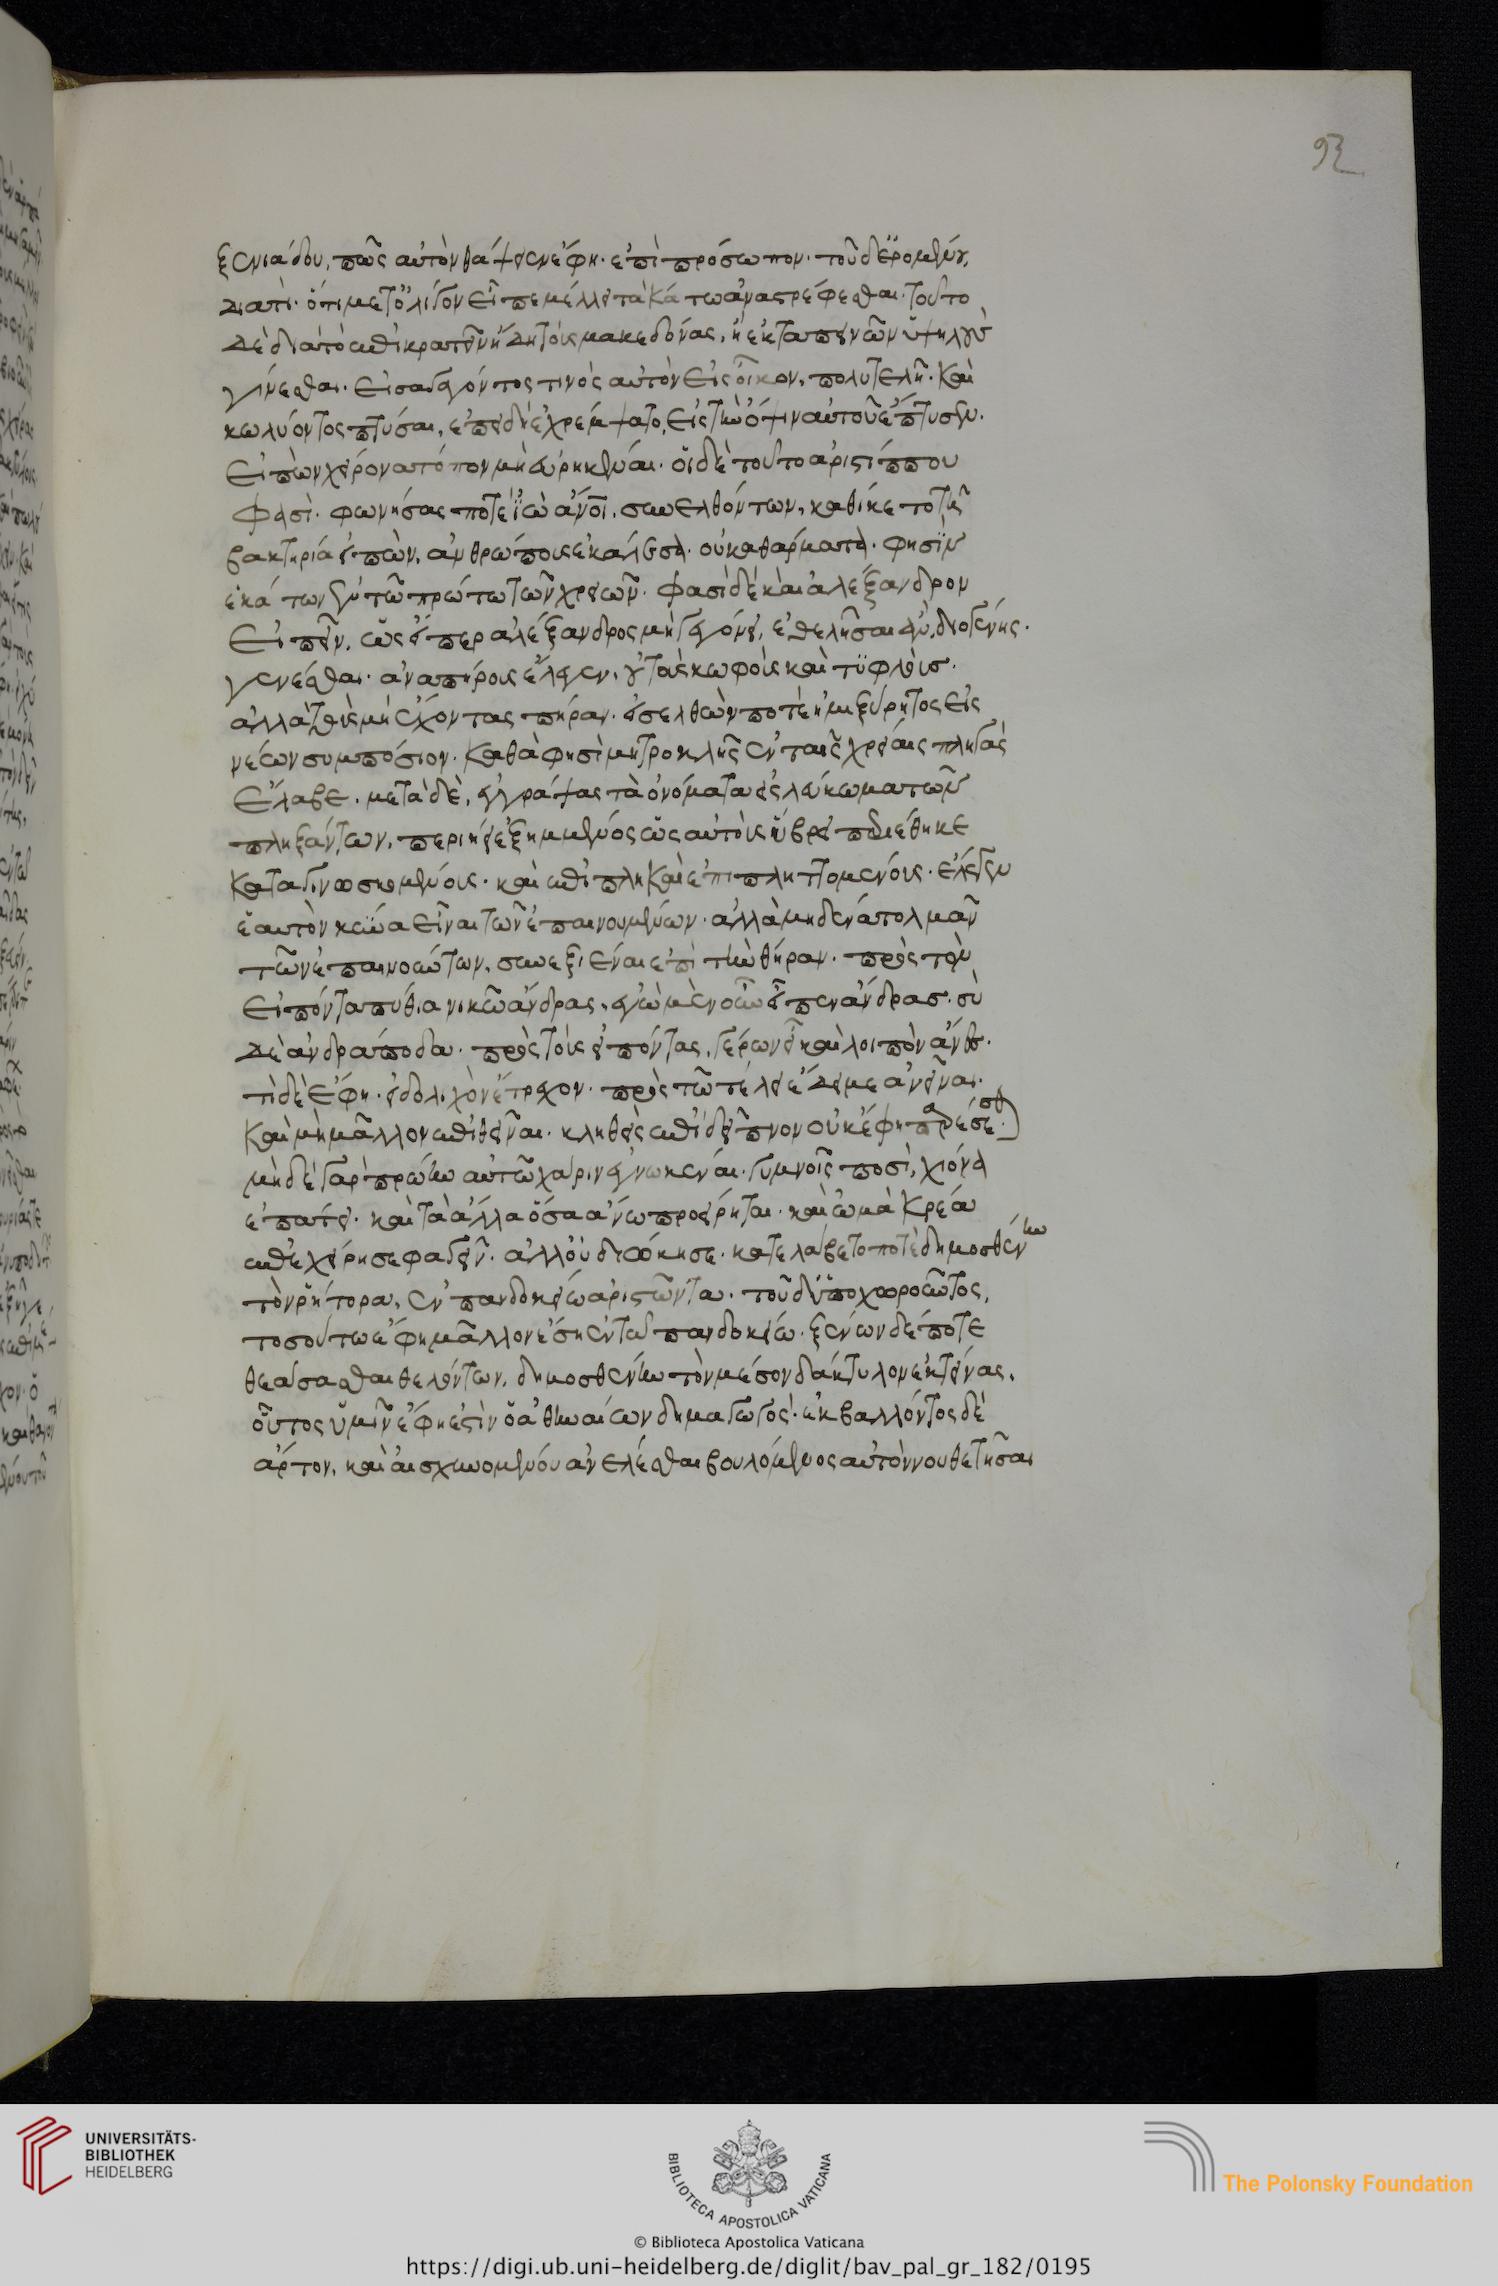 92
ξενιάδου, πῶς αὐτὸν θάψειεν ἔφη· ἐπὶ πρόσωπον· τοῦ δἐρομένου,
διατί· ὅτι μετ' ὀλίγον εἶπε μέλλει τὰ κάτω ἀναστρέφεσθαι· τοῦτο
δὲ διὰ τὸ ἐπικρατεῖν ἤδη τοὺς μακεδόνας, ἢ ἐκ ταπεινῶν ὑψηλοὺ
γίνεσθαι· εἰσαγαγόντος τινὸς αὐτὸν εἰς οἶκον, πολυτελῆ· καὶ
κωλύοντος πτύσαι, ἐπειδὴ ἐχρέμψατο, εἰς τὴν ὄψιν αὐτοῦ ἔπτυσεν·
εἰπὼν χείρονα τόπον μὴ εὑρηκέναι· οἱ δὲ τοῦτο ἀριστίππου
φασί· φωνήσας ποτὲ ἰὼ ἄνοι, συνελθόντων, καθίκετο τῆ
βακτηρία εἰπών, ἀνθρώπους ἐκάλεσα· οὐ καθάρματα· φησὶν
ἑκάτων ἐν τῶ πρώτω τῶν χρειῶν· φασὶ δὲ καὶ ἀλέξανδρον
εἰπεῖν, ὡς εἴπερ ἀλέξανδρος μὴ γεγόνει, ἐθελῆσαι ἂν, διογένης·
γενέσθαι· ἀναπήρους ἔλεγεν, οὐ τοὺς κωφοὺς καὶ τυφλούσ·
ἀλλὰ τοὺς μὴ ἔχοντας πήραν· εἰσελθών ποτε ἡμιξύρητος εἰς
νέων συμπόσιον· καθά φησι μητροκλῆς ἐν ταῖς χρείαις πληγὰς
ἔλαβε· μετὰ δὲ, ἐγγράψας τὰ ὀνόματα εἰς λεύκωμα τῶν
πληξάντων, περιήει ἐξημμένος ἕως αὐτοὺς ὕβρει περιέθηκε
καταγινωσκομένους· καὶ ἐπιπληκαὶ ἐπιπληττομένους· ἔλεγεν
ἑαυτὸν κύνα εἶναι τῶν ἐπαινουμένων· ἀλλὰ μηδένα τολμᾶν
τῶν ἐπαινούντων, συνεξιέναι ἐπὶ τὴν θήραν· πρὸς τὸν
εἰπόντα πύθια νικῶ ἄνδρας, ἐγὼ μὲν οὖν εἶπεν ἄνδρασ· σὺ
δὲ ἀνδράποδα· πρὸς τοὺς εἰπόντας, γέρων εἶ καὶ λοιπὸν ἄνες·
τί δὲ ἔφη· εἰ δόλιχον ἔτρεχον· πρὸς τῶ τέλει ἔδει με ἀνεῖναι·
καὶ μὴ μᾶλλον ἐπιθεῖναι· κληθεὶς ἐπὶ δεῖπνον οὐκ ἔφη παρέσεσθ·
μηδὲ γὰρ πρώην αὐτῶ χάριν ἐγνωκέναι· γυμνοῖς ποσὶ, χιόνα
ἐπάτει· καὶ τὰ ἄλλα ὅσα ἄνω προείρηται· καὶ ὠμὰ κρέα
ἐπεχείρησε φαγεῖν· ἀλλ' οὐ διώκησε· κατελάβετό ποτε δημοσθένην
τὸν ῥήτορα, ἐν πανδοκείω ἀριστῶντα· τοῦ δ' ὑποχωροῦντος,
τοσούτω ἔφη μᾶλλον ἔση ἐν τῶ πανδοκείω· ξένων δέ ποτε
θεάσασθαι θελόντων, δημοσθένην τὸν μέσον δάκτυλον ἐκτείνας,
οὗτος ὑμῖν ἔφη ἐστὶν ὁ ἀθηναίων δημαγωγός· ἐκβαλλόντος δὲ
ἄρτον, καὶ αἰσχυνομένου ἀνελέσθαι βουλόμενος αὐτὸν νουθετῆσαι
UNIVERSITÄTS-
BIBLIOTHEK
HEIDELBERG
BIBLIOTECA APOSTOLICA VATICANA
© Biblioteca Apostolica Vaticana
The Polonsky Foundation
https://digi.ub.uni-heidelberg.de/diglit/bav_pal_gr_182/0195